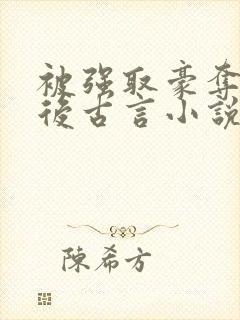 被强取豪夺
後古言小說
陳希方